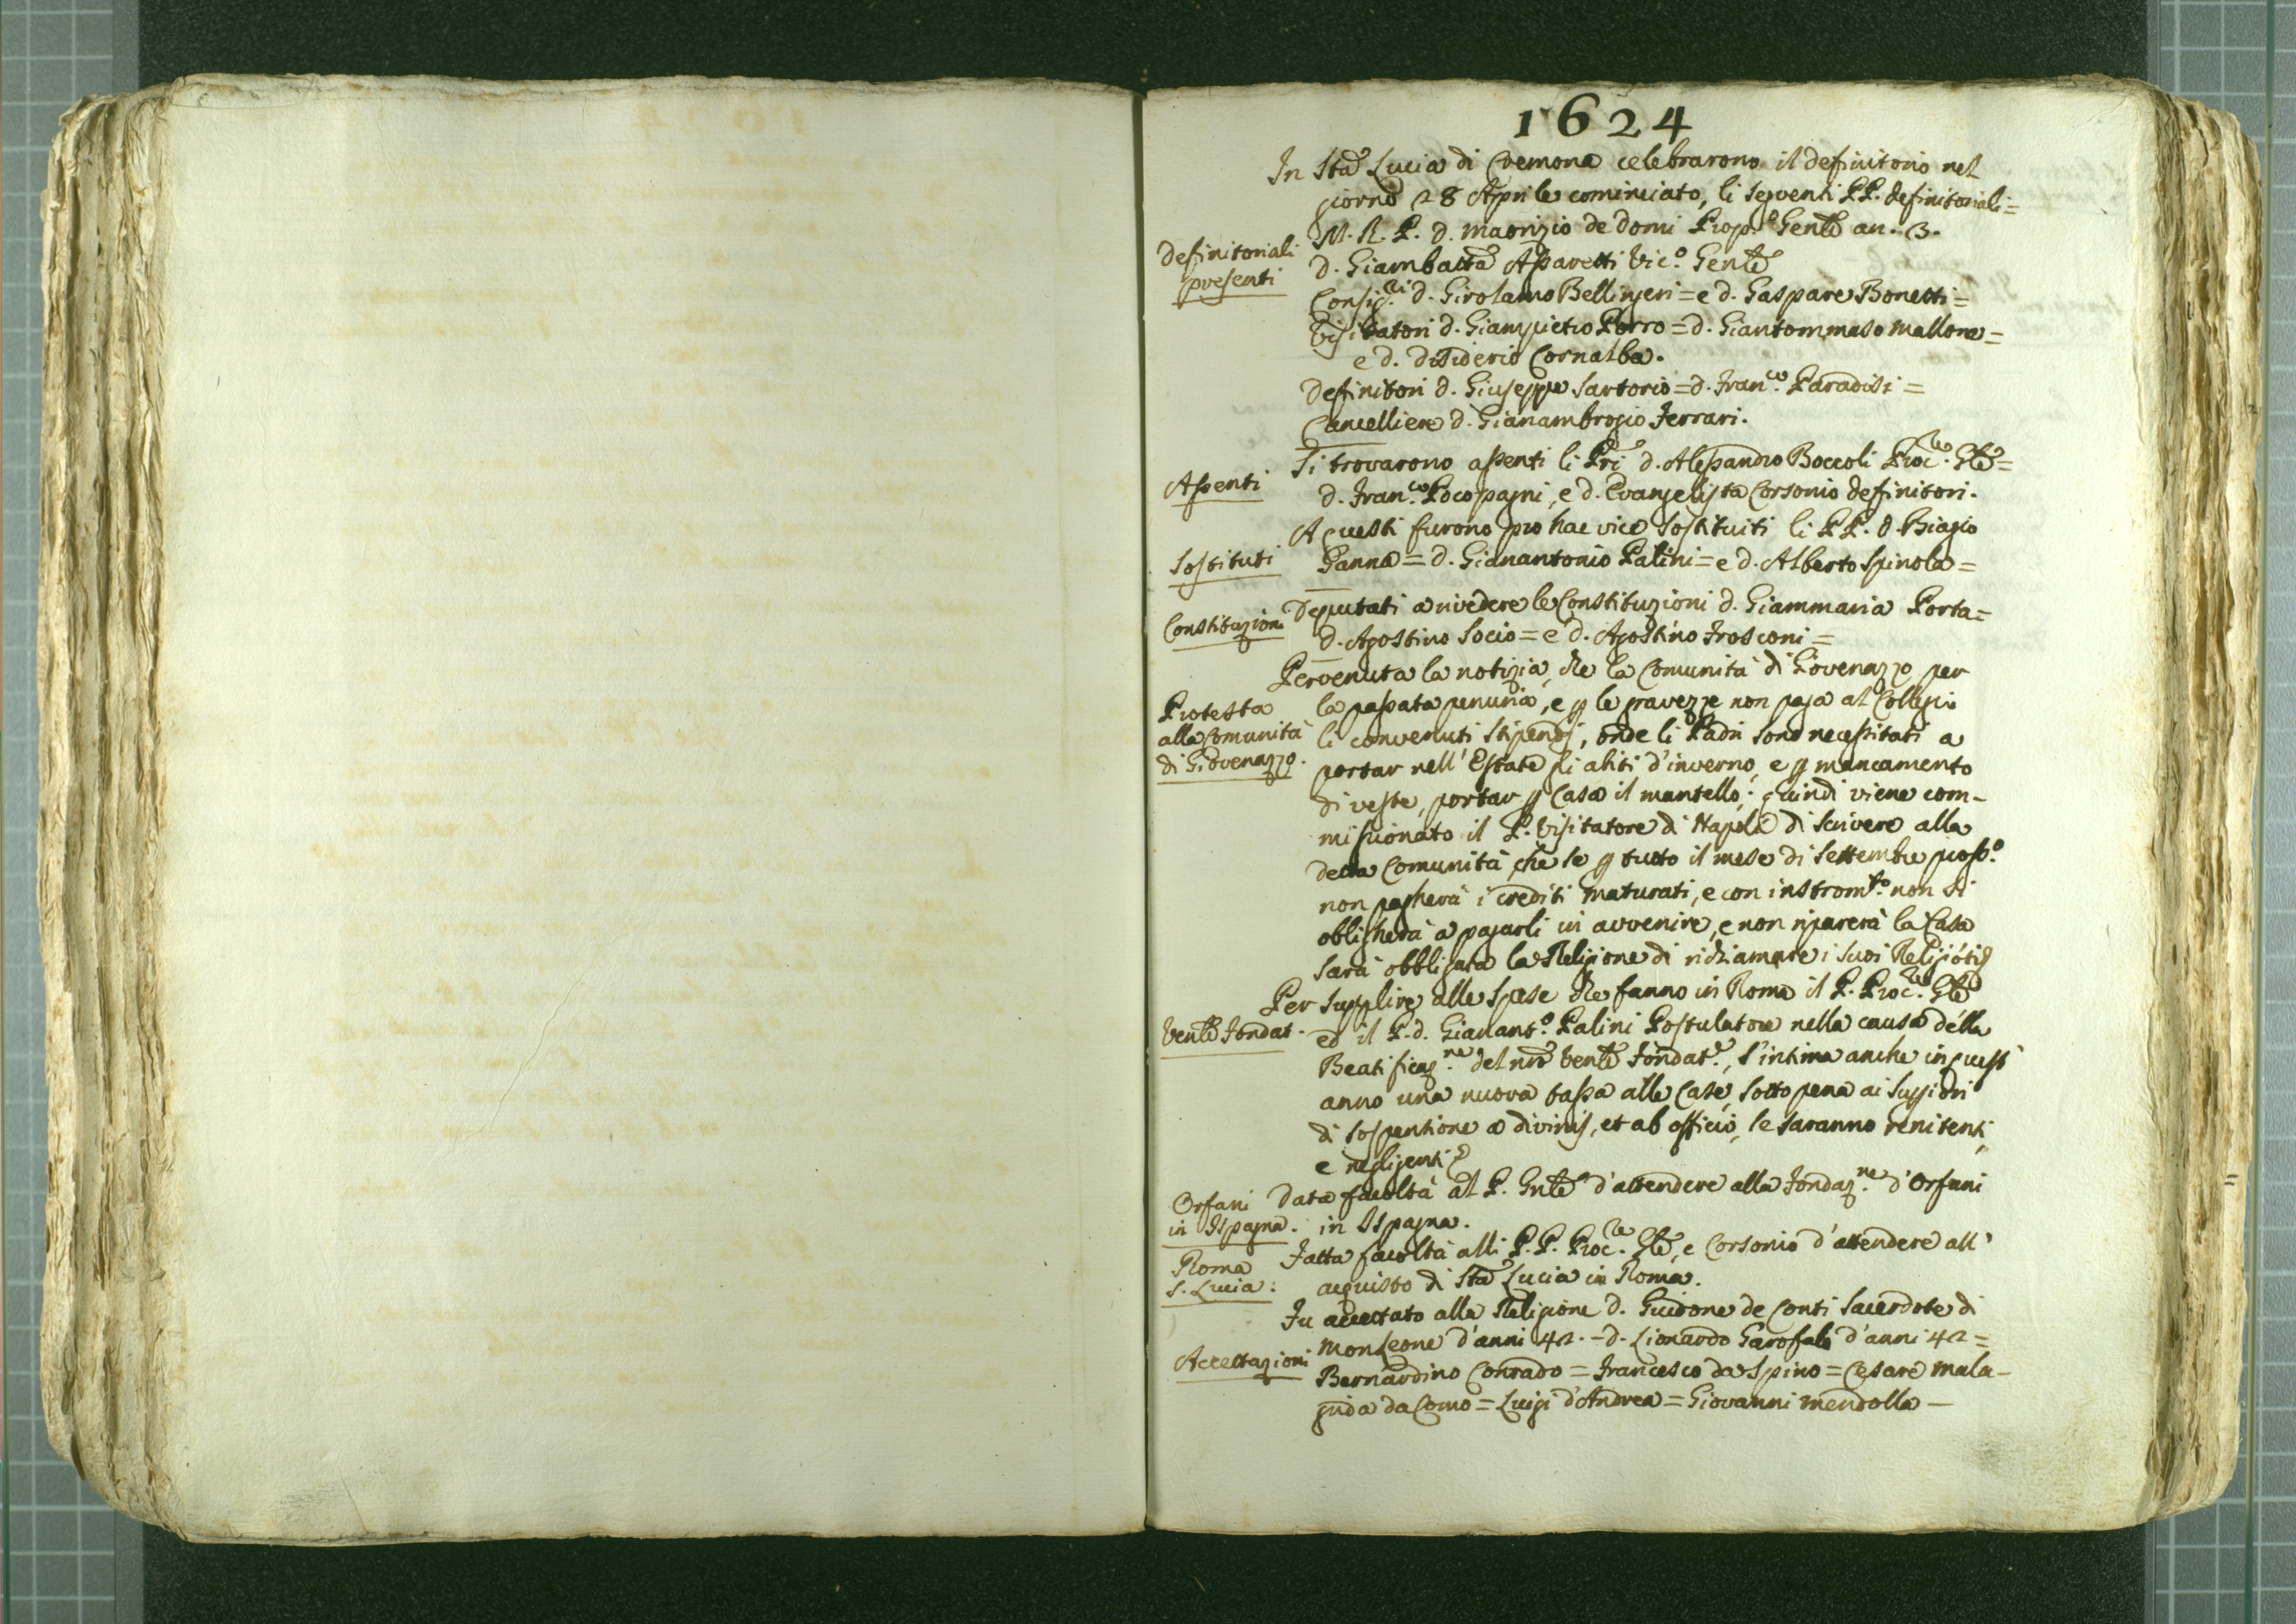 1624
In Sta Lucia di Cremona celebrarono il definitorio nel
giorno 28 Aprile cominciato, li seguenti PP. definitoriali =
Definitoriali
presenti
M. R. P. d. Maorizio de Domi Prop.o Genle an. 3.
d. Giambatta Assaretti Vic.o Genle
Consig.ri d. Girolamo Bellingeri = e d. Gaspare Bonetti =
Visitatori d. Giampietro Porro = d. Giantommaso Mallone =
e d. Disiderio Cornalba.
Definitori d. Giuseppe Sartorio = d. Fran.co Paradisi =
Cancelliere d. Gianambrogio Ferrari.
Assenti
Si trovarono assenti li Pri d. Alessandro Boccoli Proc.re Gle =
d. Fran.co Pocopagni, e d. Evangelista Corsonio definitori.
Sostituti
A questi furono pro hac vice sostituiti li PP. d. Biagio
Ganna = d. Gianantonio Palini = e d. Alberto Spinola =
Constituzioni
Deputati a rivedere le Constituzioni d. Giammaria Porta =
d. Agostino Socio = e d. Agostino Frosconi =
Protesta
alla Comunità
di Giovenazzo.
Pervenuta la notizia, che la Comunità di Giovenazzo per
la passata penuria, e p le gravezze non paga al Collegio
li convenuti stipendj, onde li Padri sono necessitati a
portar nell' Estate gli abiti d'inverno, e p mancamento
di veste, portar p Casa il mantello; quindi viene com-
missionato il P. Visitatore di Napoli di scrivere alla
detta Comunità, che se p tutto il mese di Settembre pross.o
non pagherà i crediti maturati, e con instrom.to non si
obligherà a pagarli in avvenire, e non riparerà la Casa
sarà obbligata la Religione di richiamare i suoi Religiosi
Venle Fondat.
Per supplire alle spese che fanno in Roma il P. Proc.re Gle
ed il P. d. Gianant.o Palini Postulatore nella causa della
Beatificaz.ne del nro Venle Fondat.e, s'intima anche in quest
anno una nuova tassa alle Case, sotto pena ai Supriori
di sospensione a divinis, et ab officio, se saranno renitenti,
e negligenti
Orfani
in Ispagna.
Data facoltà al P. Gnle d'attendere alla Fondaz.ne d'Orfani
in Ispagna.
Roma
S. Lucia:
Fatta facoltà alli P.P. Proc.re Gle, e Corsonio d'attendere all'
acquisto di Sta Lucia in Roma.
Accettazioni
Fu accettato alla Religione d. Guidone de Conti Sacerdote di
Monleone d'anni 42. - d. Lionardo Garofalo d'anni 42 =
Bernardino Conrado = Francesco da Spino = Cesare Mala-
grida da Como = Luigi d'Andrea = Giovanni Mendolla -